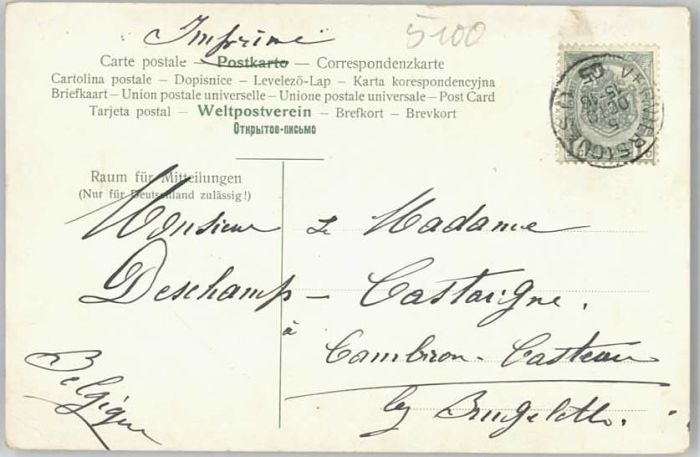 Imprimé
5400
Carte postale – Postkarte – Correspondenzkarte
Cartolina postale – Dopisnice – Levelező-Lap – Karta korespondencyjna
Briefkaart – Union postale universelle – Unione postale universale – Post Card
Tarjeta postal – Weltpostverein – Brefkort – Brevkort
Открытое-письмо
Raum für Mitteilungen
(Nur für Deutschland zulässig!)
Monsieur & Madame
Deschamps – Castaigne.
à
Cambron-Casteau
by Brugelette.
Belgique